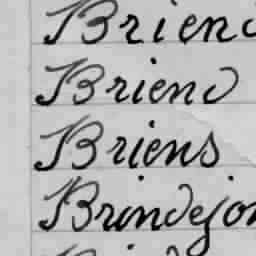 Briend
Briend
Briens
Brindejon